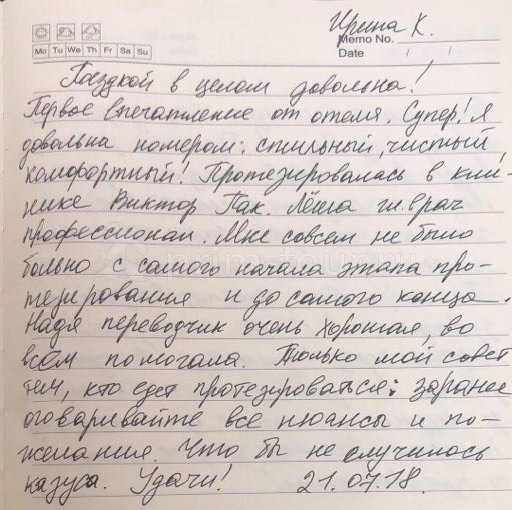 Ирина К.
Memo No.
Mo Tu We Th Fr Sa Su
Date / /
Паздкой в целом довольна!
Первое впечатление от отеля. Супер! Я
довольна номером: стильный, чистый,
комфортный! Протезировалась в кли-
нике Виктор Пак. Лёша гл. врач
профессионал. Мне совсем не было
больно с самого начала этапа про-
тезирования и до самого конца.
Надя переводчик очень хорошая, во
всём помогала. Только мой совет
тем, кто едет протезироваться: заранее
оговаривайте все нюансы и по-
желания. Что бы не случилось
казуса. Удачи! 21.07.18.
prim-tour.ru